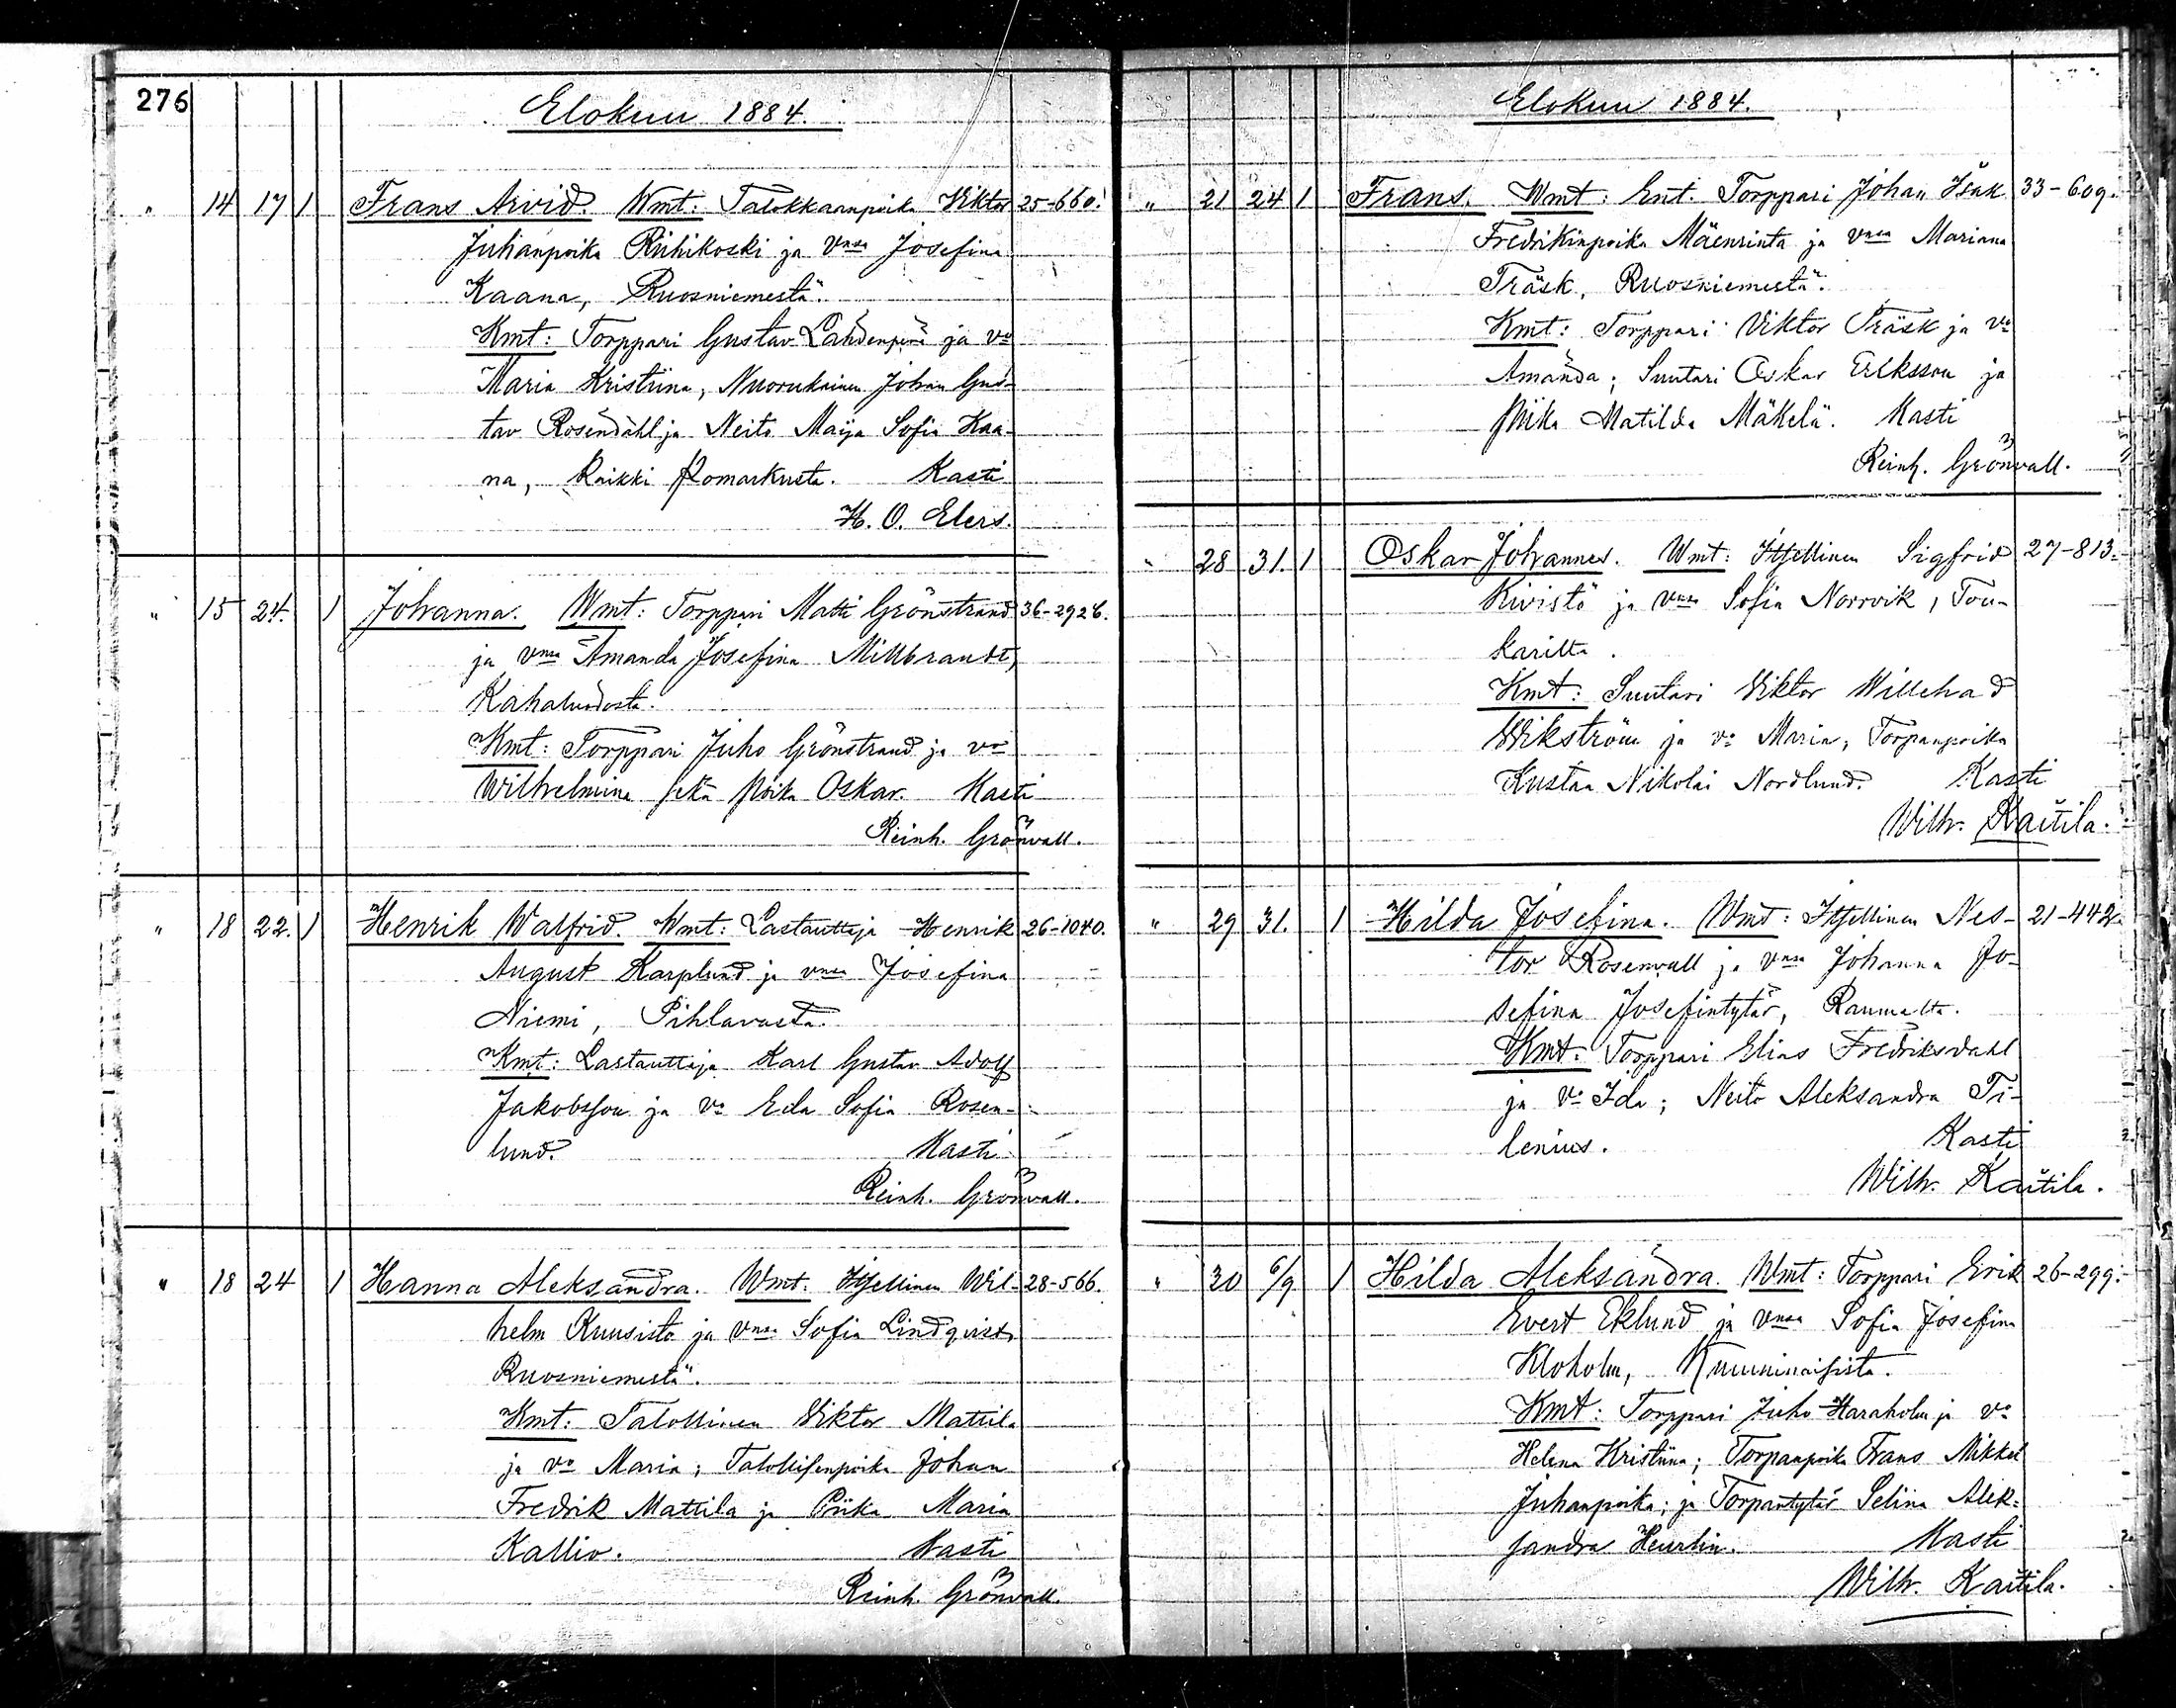 276
Elokuu 1884.
" 14 17 1 Frans Arvid. Wmt: Talokkaanpoika Viktor 25-660.
Juhanpoika Riihikoski ja vnsa Josefina
Kaana, Ruosniemestä.
Kmt: Torppari Gustav Lahdenperä ja vo
Maria Kristiina, Nuorukainen Johan Gus-
tav Rosendahl ja Neito Maija Sofia Kaa-
na, Kaikki Pomarkusta. Kasti
H. O. Elers.
" 15 24. 1 Johanna. Wmt: Torppari Matti Grönstrand 36-2926.
ja vnsa Amanda Josefina Millbrandt,
Kahaluodosta.
Kmt: Torppari Juho Grönstrand ja vo
Wilhelmina sekä poika Oskar. Kasti
Reinh. Grönvall.
" 18 22. 1 Henrik Walfrid. Wmt: Lastauttaja Henrik 26-1040.
August Karplund ja vnsa Josefina
Niemi, Pihlavasta.
Kmt: Lastauttaja Karl Gustav Adolf
Jakobsson ja vo Eda Sofia Rosen-
lund. Kasti
Reinh. Grönvall.
" 18 24 1 Hanna Aleksandra. Wmt: Itsellinen Wil- 28-566.
helm Kuusisto ja vnsa Sofia Lindqvist,
Ruosniemestä.
Kmt: Talollinen Viktor Mattila
ja vo Maria; Talollisenpoika Johan
Fredrik Mattila ja Piika Maria
Kallio. Kasti
Reinh. Grönvall.
Elokuu 1884.
" 21 24 1 Frans. Wmt: Ent. Torppari Johan Isak 33-609.
Fredrikinpoika Mäenrinta ja vnsa Mariana
Träsk, Ruosniemestä.
Kmt: Torppari Viktor Träsk ja vo
Amanda; Suutari Oskar Eriksson ja
piika Matilda Mäkelä. Kasti
Reinh. Grönvall.
" 28 31. 1 Oskar Johannes. Wmt: Itsellinen Sigfrid 27-813.
Kivistö ja vnsa Sofia Norrvik, Tou-
karilta.
Kmt: Suutari Viktor Willehad
Wikström ja vo Maria; Torpanpoika
Kustaa Nikolai Nordlund. Kasti
Wilh. Kaitila.
" 29 31. 1 Hilda Josefina. Wmt: Itsellinen Nes- 21-442.
tor Rosenvall ja vnsa Johanna Jo-
sefina Josefintytär, Raumalta.
Kmt: Torppari Elias Fredriksdahl
ja vo Ida; Neito Aleksandra Ti-
lenius. Kasti
Wilh. Kaitila.
" 30 6/9 1 Hilda Aleksandra. Wmt: Torppari Erik 26-299.
Evert Eklund ja vnsa Sofia Josefina
Kloholm,
Kmt: Torppari Juho Haraholm ja vo
Helena Kristiina; Torpanpoika Frans Mikkel
Juhanpoika; ja Torpantytär Selina Alek-
sandra Heurlin. Kasti
Wilh. Kaitila.